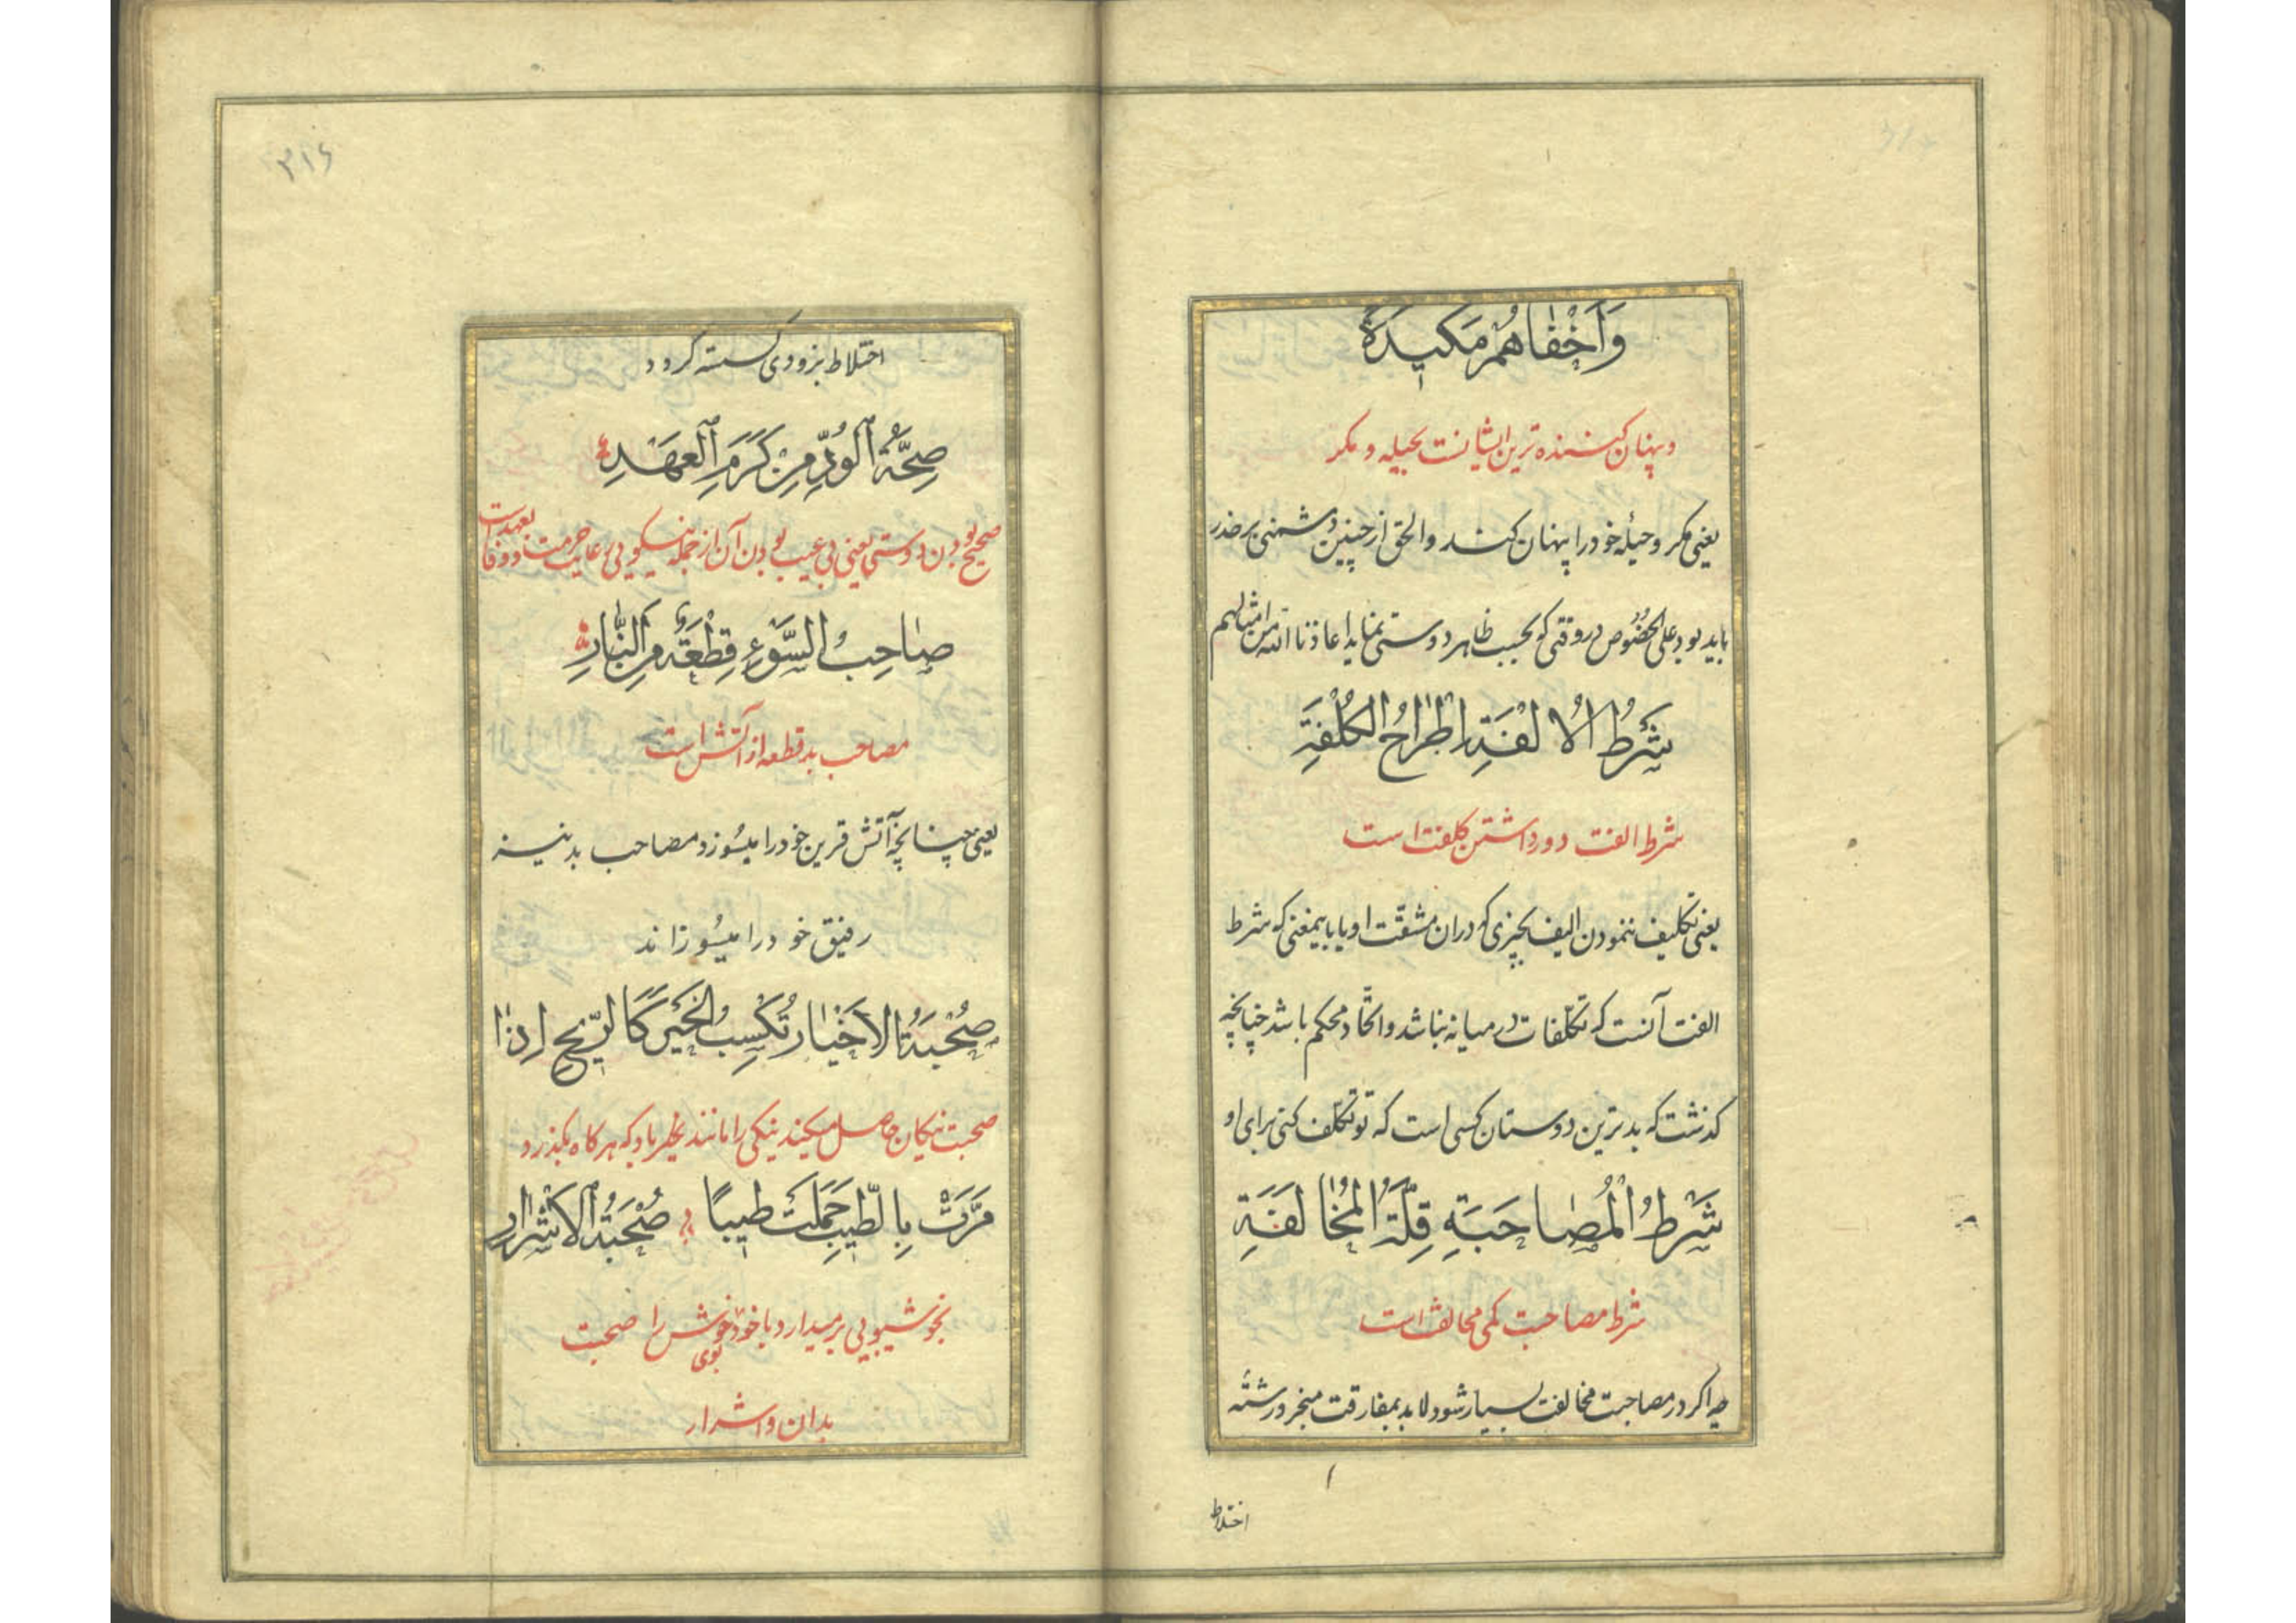 وَاَخْفٰاهُمْ مَكيدَةً
و پنهان کننده ترین ایشانست بحیله و مکر
یعنی مکر و حیلهٔ خود را پنهان کند و الحق از چنین دشمنی بر حذر
باید بود علی الخصُوص در وقتی که بحسب ظاهر دوستی نماید اعاذنا الله من امثالهم
شَرْطُ الْاُلْفَةِ اطِّرٰاحُ الْكُلْفَةِ
شرط الفت دور داشتن کلفت است
یعنی تکلیف ننمودن الیف بچیزی که در ان مشقّت او یا باینمعنی که شرط
الفت آنست که تکلّفات در میانه نباشد و اتّحاد محکم باشد چنانچه
کذشت که بدترین دوستان کسی است که تو تکلّف کنی برای او
شَرْطُ الْمُصٰاحَبَةِ قِلَّةُ الْمُخٰالَفَةِ
شرط مصاحبت کمی مخالفت است
چه اکر در مصاحبت مخالفت بسیار شود لابد بمفارقت منجر و رشتهٔ
اختلاط
۳۱۶
اختلاط بزودی کسسته کردد
صِحَّةُ الْوُدِّ مِنْ كَرَمِ الْعَهْدِ
صحیح بودن دوستی یعنی بی عیب بودن آن از جمله نیکویی رعایت حرمت و وفا بعهد است
صٰاحِبُ السَّوْءِ قِطْعَةٌ مِنَ النّٰارِ
مصاحب بد قطعه از آتش است
یعنی چنانچه آتش قرین خود را میسُوزد مصاحب بد نیز
رفیق خود را میسُوزاند
صُحْبَةُ الْاَخْيٰارِ تُكْسِبُ الْخَيْرَ كَالرّيحِ اِذٰا
صحبت نیکان حاصل میکند نیکی را مانند باد که هر کاه بکذرد
مَرَّتْ بِالطّيبِ حَمَلَتْ طيبًا صُحْبَةُ الْاَشْرٰارِ
بخوشبویی برمیدارد با خود بوی خوش را صحبت
بدان و اشرار